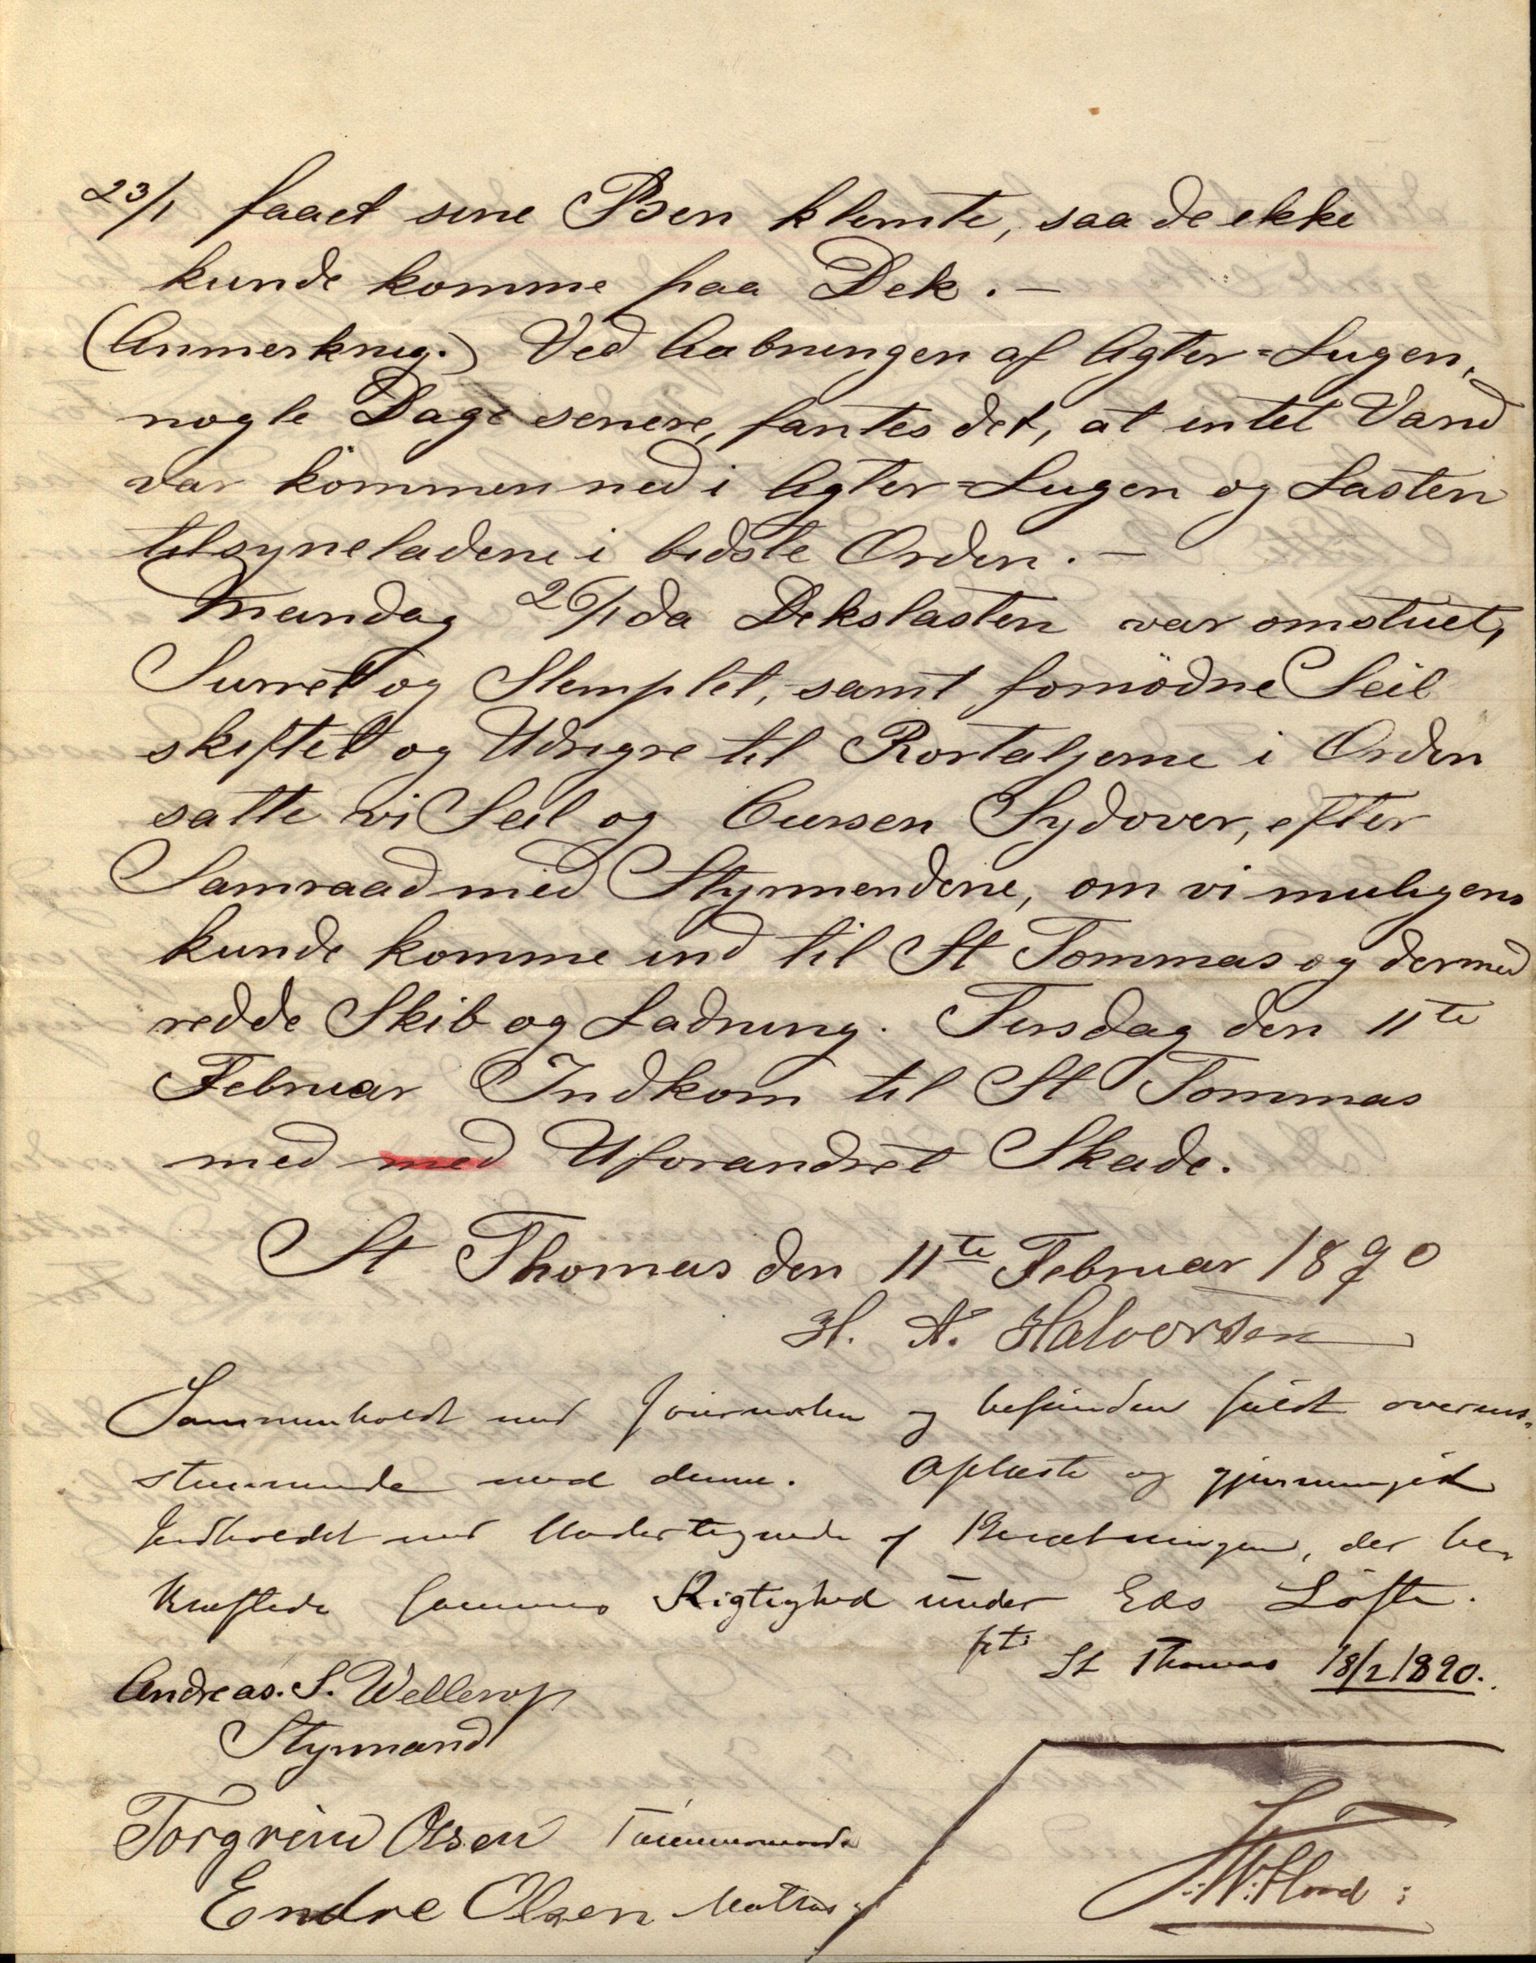 23/1 faaet sine Ben klemte, saa de ikke
kunde komme paa Dek. —
(Anmerknig.) Ved Aabningen af Agter=Lugen,
nogle Dage senere, fantes det, at intet Vand
var kommen ned i Agter=Lugen og Lasten
tilsyneladene i bedste Orden. —
Mandag 26/1 da Dekslasten var omstuet,
Surret og Stemplet, samt fornødne Seil
skiftet og Udrigre til Rortaljerne i Orden
satte vi Seil og Cursen Sydover, efter
Samraad med Styrmendene, om vi muligens
kunde komme ind til St Tommas og dermed
redde Skib og Ladning. Tirsdag den 11te
Februar Indkom til St Tommas
med med Uforandret Skade.
St Thomas den 11te Februar 1890
H. A. Halvorsen
Sammenholdt med Journalen og befunden fuldt overens-
stemmende med denne. Oplæste og gjennemgik
Indholdet med Undertegnede af Beretningen, der be-
kræftede sammes Rigtighed under Eds Löfte.
St Thomas 18/2 1890.
Andreas. S. Wellerop
Styrmand
Torgrim Olsen Tømmermand
Endre Olsen Matros